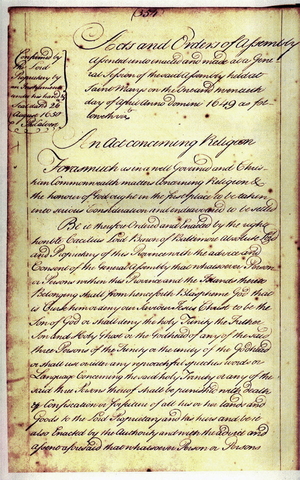 (354)
Confirmed by
the Lord
Proprietary by
an Instrument
under his hand &
Seal dated 26
August 1650
Acts and Orders of Assembly
Assented unto enacted and made at a Gene
ral Session of the said Assembly held at
Saint Marys on the One and twentieth
day of April Anno Domini 1649 as fol
loweth viz
An Act concerning Religion
Forasmuch as in a well Governed and Chris
tian Commonwealth matters Concerning Religion &
the honour of God ought in the first place to be taken
into serious Consideration and endeavoured to be settled
Be it therefore Ordained and Enacted by the right
honble Cecilius Lord Baron of Baltemore absolute Lord
and Proprietary of this Province with the advice and
Consent of this General Assembly that whatsoever Person
or Persons within this Province and the Islands thereto
Belonging shall from henceforth Blaspheme God that
is Curse him or deny our Saviour Jesus Christ to be the
Son of God or shall deny the holy Trinity the Father
Son and Holy Ghost or the Godhead of any of the said
three Persons of the Trinity or the unity of the Godhead
or shall use or utter any reproachful speeches words or
Language Concerning the said Holy Trinity or any of the
said three Persons thereof shall be punished with Death
& Confiscation or forfeiture of all his or her lands and
Goods to the Lord Proprietary and his heirs and be it
also Enacted by the Authority and with the advice and
assent aforesaid that whatsoever Person or Persons